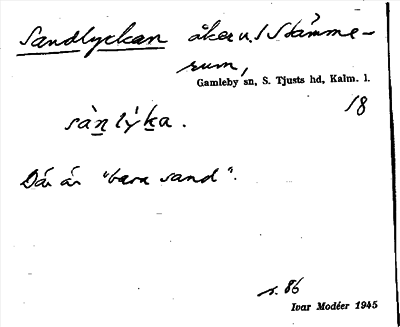 Sandlyckan åker u. Stämme-
rum,
Gamleby sn, S. Tjusts hd, Kalm. l.
18
sànlýka.
Där är "bara sand".
s. 86
Ivar Modéer 1945